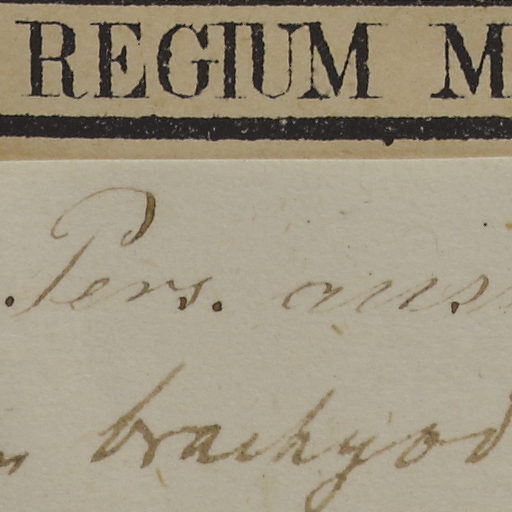 REGIUM M
Pers. aus
brachyod